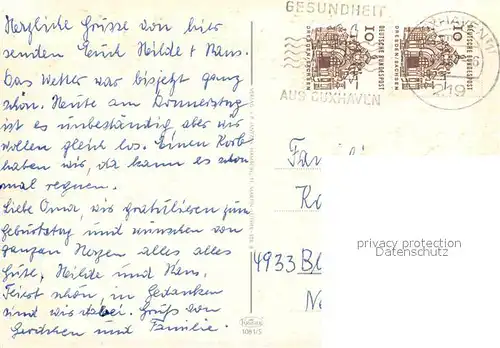 Herzliche Grüsse von hier
senden Euch Hilde + Hans.
Das Wetter war bisjetzt ganz
schön. Heute am Donnerstag
ist es unbeständig, aber wir
wollen gleich los. Einen Korb
haben wir, da kann es schon
mal regnen.
Liebe Oma, wir gratulieren zum
Geburtstag und wünschen von
ganzen Herzen alles alles
Gute, Hilde und Hans.
Feiert schön, in Gedanken
sind wir dabei. Gruß von
und Familie.
GESUNDHEIT
AUS CUXHAVEN
10
DEUTSCHE BUNDESPOST
10
DEUTSCHE BUNDESPOST
CUXHAVEN 1
219
Fa
4933 Bl
privacy protection
Datenschutz
1081/5